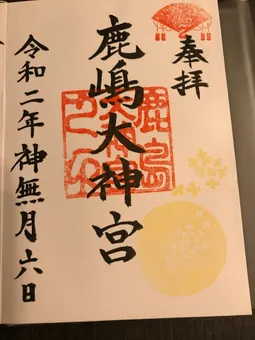 奉拝
鹿嶋大神宮
令和二年神無月六日